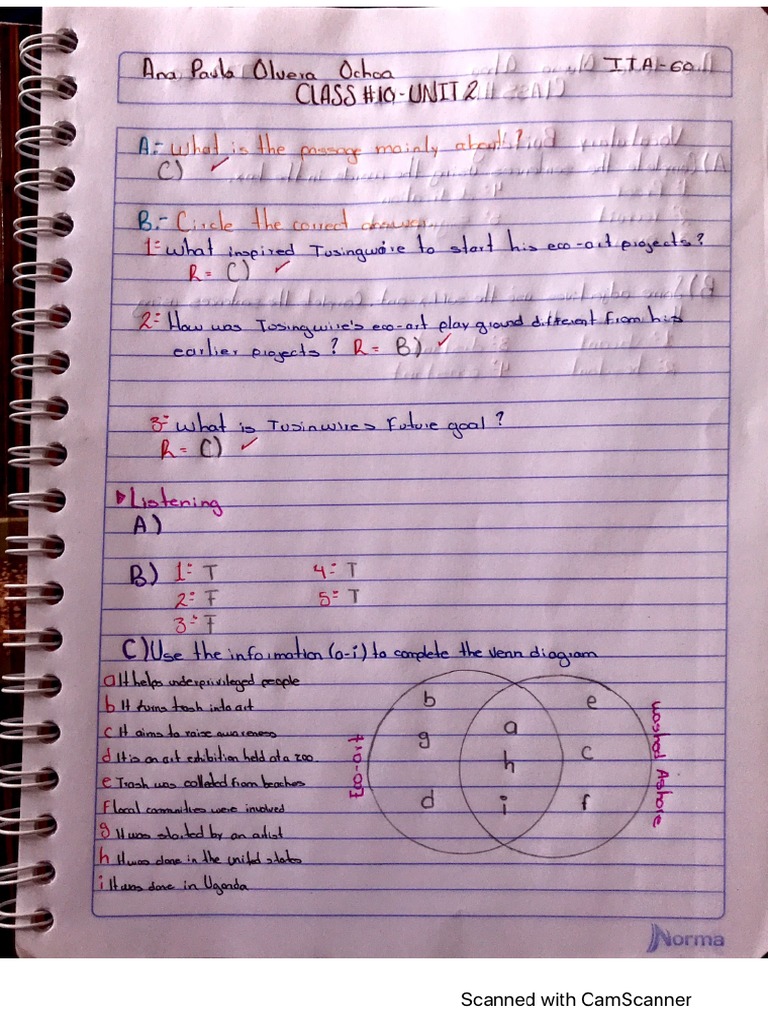 Ana Paula Olvera Ochoa ITA-60
CLASS #10-UNIT 2
A:- What is the passage mainly about?
C) ✓
B.- Circle the correct answer
1:- What inspired Tusingwire to start his eco-art projects?
R = C) ✓
2:- How was Tusingwire's eco-art play ground different from his
earlier projects? R = B) ✓
3:- What is Tusinwires Future goal?
R = C) ✓
Listening
A)
B) 1:- T 4:- T
2:- F 5:- T
3:- F
C) Use the information (a-i) to complete the venn diagram
a It helps underprivileged people
b It turns trash into art
c It aims to raise awareness
d It is an art exhibition held at a zoo.
e Trash was collated from beaches
f local communities were involved
g It was started by an artist
h It was done in the united states
i It was done in Uganda
Eco-art
b
g
d
a
h
i
e
c
f
washed Ashore
Norma
Scanned with CamScanner